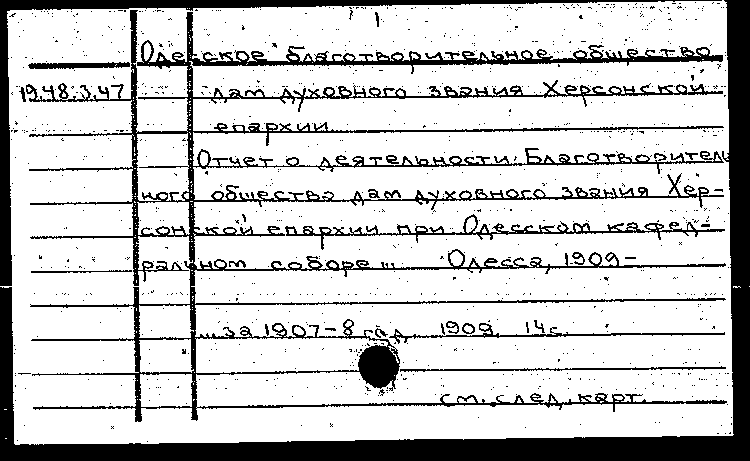 Одесское благотворительное общество
19.48.3.47 дам духовного звания Херсонской
епархии
Отчет о деятельности Благотворитель
ного общества дам духовного звания Хер-
сонской епархии при Одесском кафед-
ральном соборе... Одесса, 1909-
...за 1907-8 год. 1909. 14с.
см. след. карт.